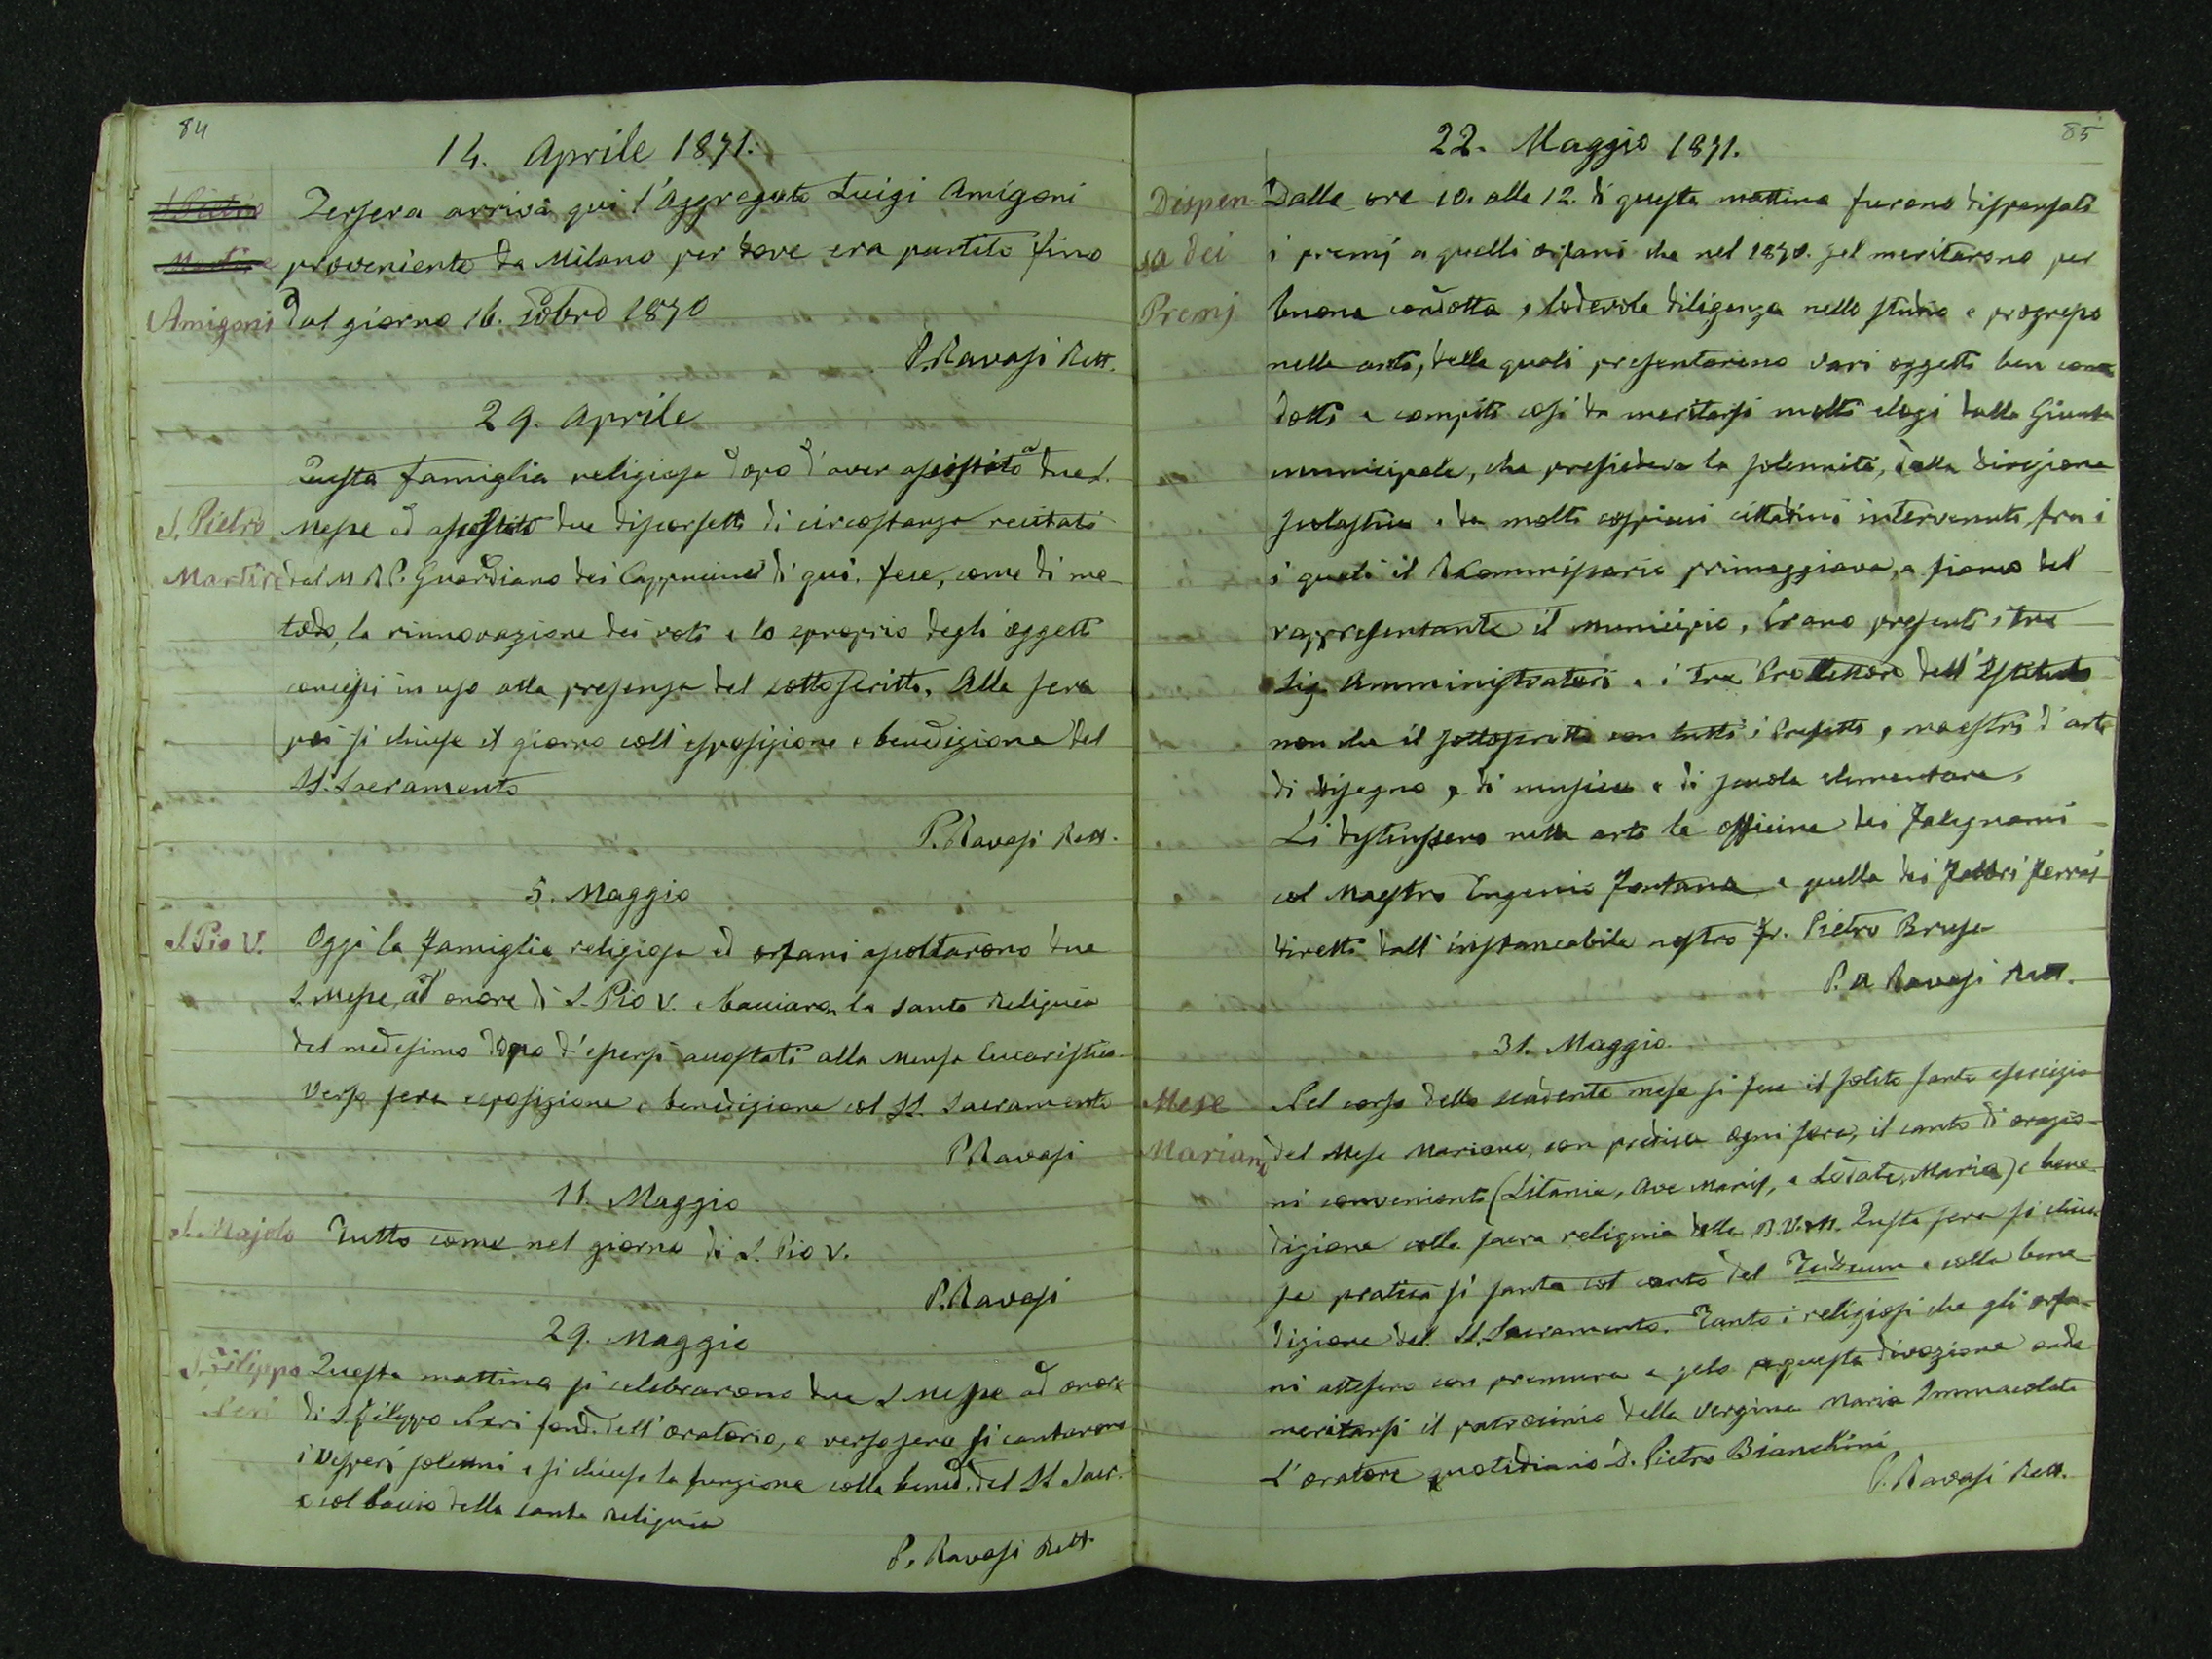 84
14. Aprile 1871.
S. Pietro
Martire
Amigoni
Jersera arrivò qui l'Aggregato Luigi Amigoni
proveniente da Milano per dove era partito fino
dal giorno 16. 1870
P. Ravasi Rett.
29. Aprile
S. Pietro
Martire
Questa famiglia religiosa dopo d'aver assistito a due S.
Messe ed ascoltato due discorsetti di circostanza recitati
dal M R P. Guardiano dei Cappuccini di qui, fece, come di me-
todo, la rinnovazione dei voti e lo sproprio degli oggetti
concessi in uso alla presenza del sottoscritto. Alla sera
poi si chiuse il giorno coll'esposizione e benedizione del
SS. Sacramento
P. Ravasi Rett.
5. Maggio
S. Pio V.
Oggi la famiglia religiosa ed orfani ascoltarono due
S. Messe, ad onore di S. Pio V. e bacciaron la santa Reliquia
del medesimo dopo d'essersi accostati alla Mensa Eucaristica
Verso sera esposizione e benedizione col SS. Sacramento
P. Ravasi
11. Maggio
S. Majolo
Tutto come nel giorno di S. Pio V.
P. Ravasi
29. Maggio
S. Filippo
Neri
Questa mattina si celebrarono due S Messe ad onore
di S. Filippo Neri fond. dell'oratorio, e verso sera si cantarono
i Vesperi solenni e si chiuse la funzione colla bened. del SS Sacr.
e col baccio della santa Reliquia
P. Ravasi Rett.
85
22. Maggio 1871.
Dispen-
sa dei
Premj
Dalle ore 10. alle 12. di questa mattina furono dispensati
i premj a quelli orfani che nel 1870. sel meritarono per
buona condotta, lodevole diligenza nello studio e progresso
nelle arti, delle quali presentarono vari oggetti ben con-
dotti e compiti così da meritarsi molti elogi dalla Giunta
municipale, che presiedeva la solennità, dalla direzione
scolastica e da molti cospicui cittadini intervenuti, fra i
i quali il R Commissario primeggiava, a fianco del
rappresentante il municipio. Erano presenti i tre
Sig. Amministratori e i tre Protettori dell'Istituto
non che il sottoscritto con tutti i Prefetti, maestri d'arte
di disegno, di musica e di scuola elementare.
Si distinsero nelle arti le officine dei Falegnami
col Maestro Eugenio Fontana e quella dei Fabbri ferraj
diretti dall'instancabile nostro Fr. Pietro Brusa
P. R Ravasi Rett.
31. Maggio
Mese
Mariano
Nel corso dello scadente mese si fece il solito santo esercizio
del Mese Mariano, con predica ogni sera, il canto di orazio-
ni convenienti (Litanie, Ave Maris, e Lodate, Maria) e bene-
dizione colla sacra reliquia della B.V.M. Questa sera si chiu-
se pratica sì santa col canto del Tedeum e colla bene-
dizione del SS. Sacramento. Tanto i religiosi che gli orfa-
ni attesero con premura e zelo a questa divozione onde
meritarsi il patrocinio della Vergine Maria Immacolata
L'oratore quotidiano D. Pietro Bianchini
P. Ravasi Rett.